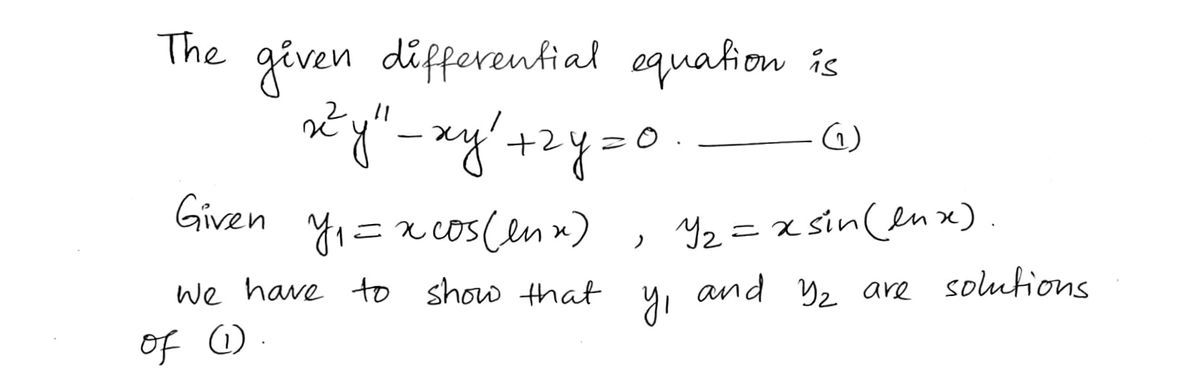 The given differential equation is
x²y'' - xy' + 2y = 0. —— (1)
Given y₁ = x cos(ln x) , y₂ = x sin(ln x).
We have to show that y₁ and y₂ are solutions
of (1).